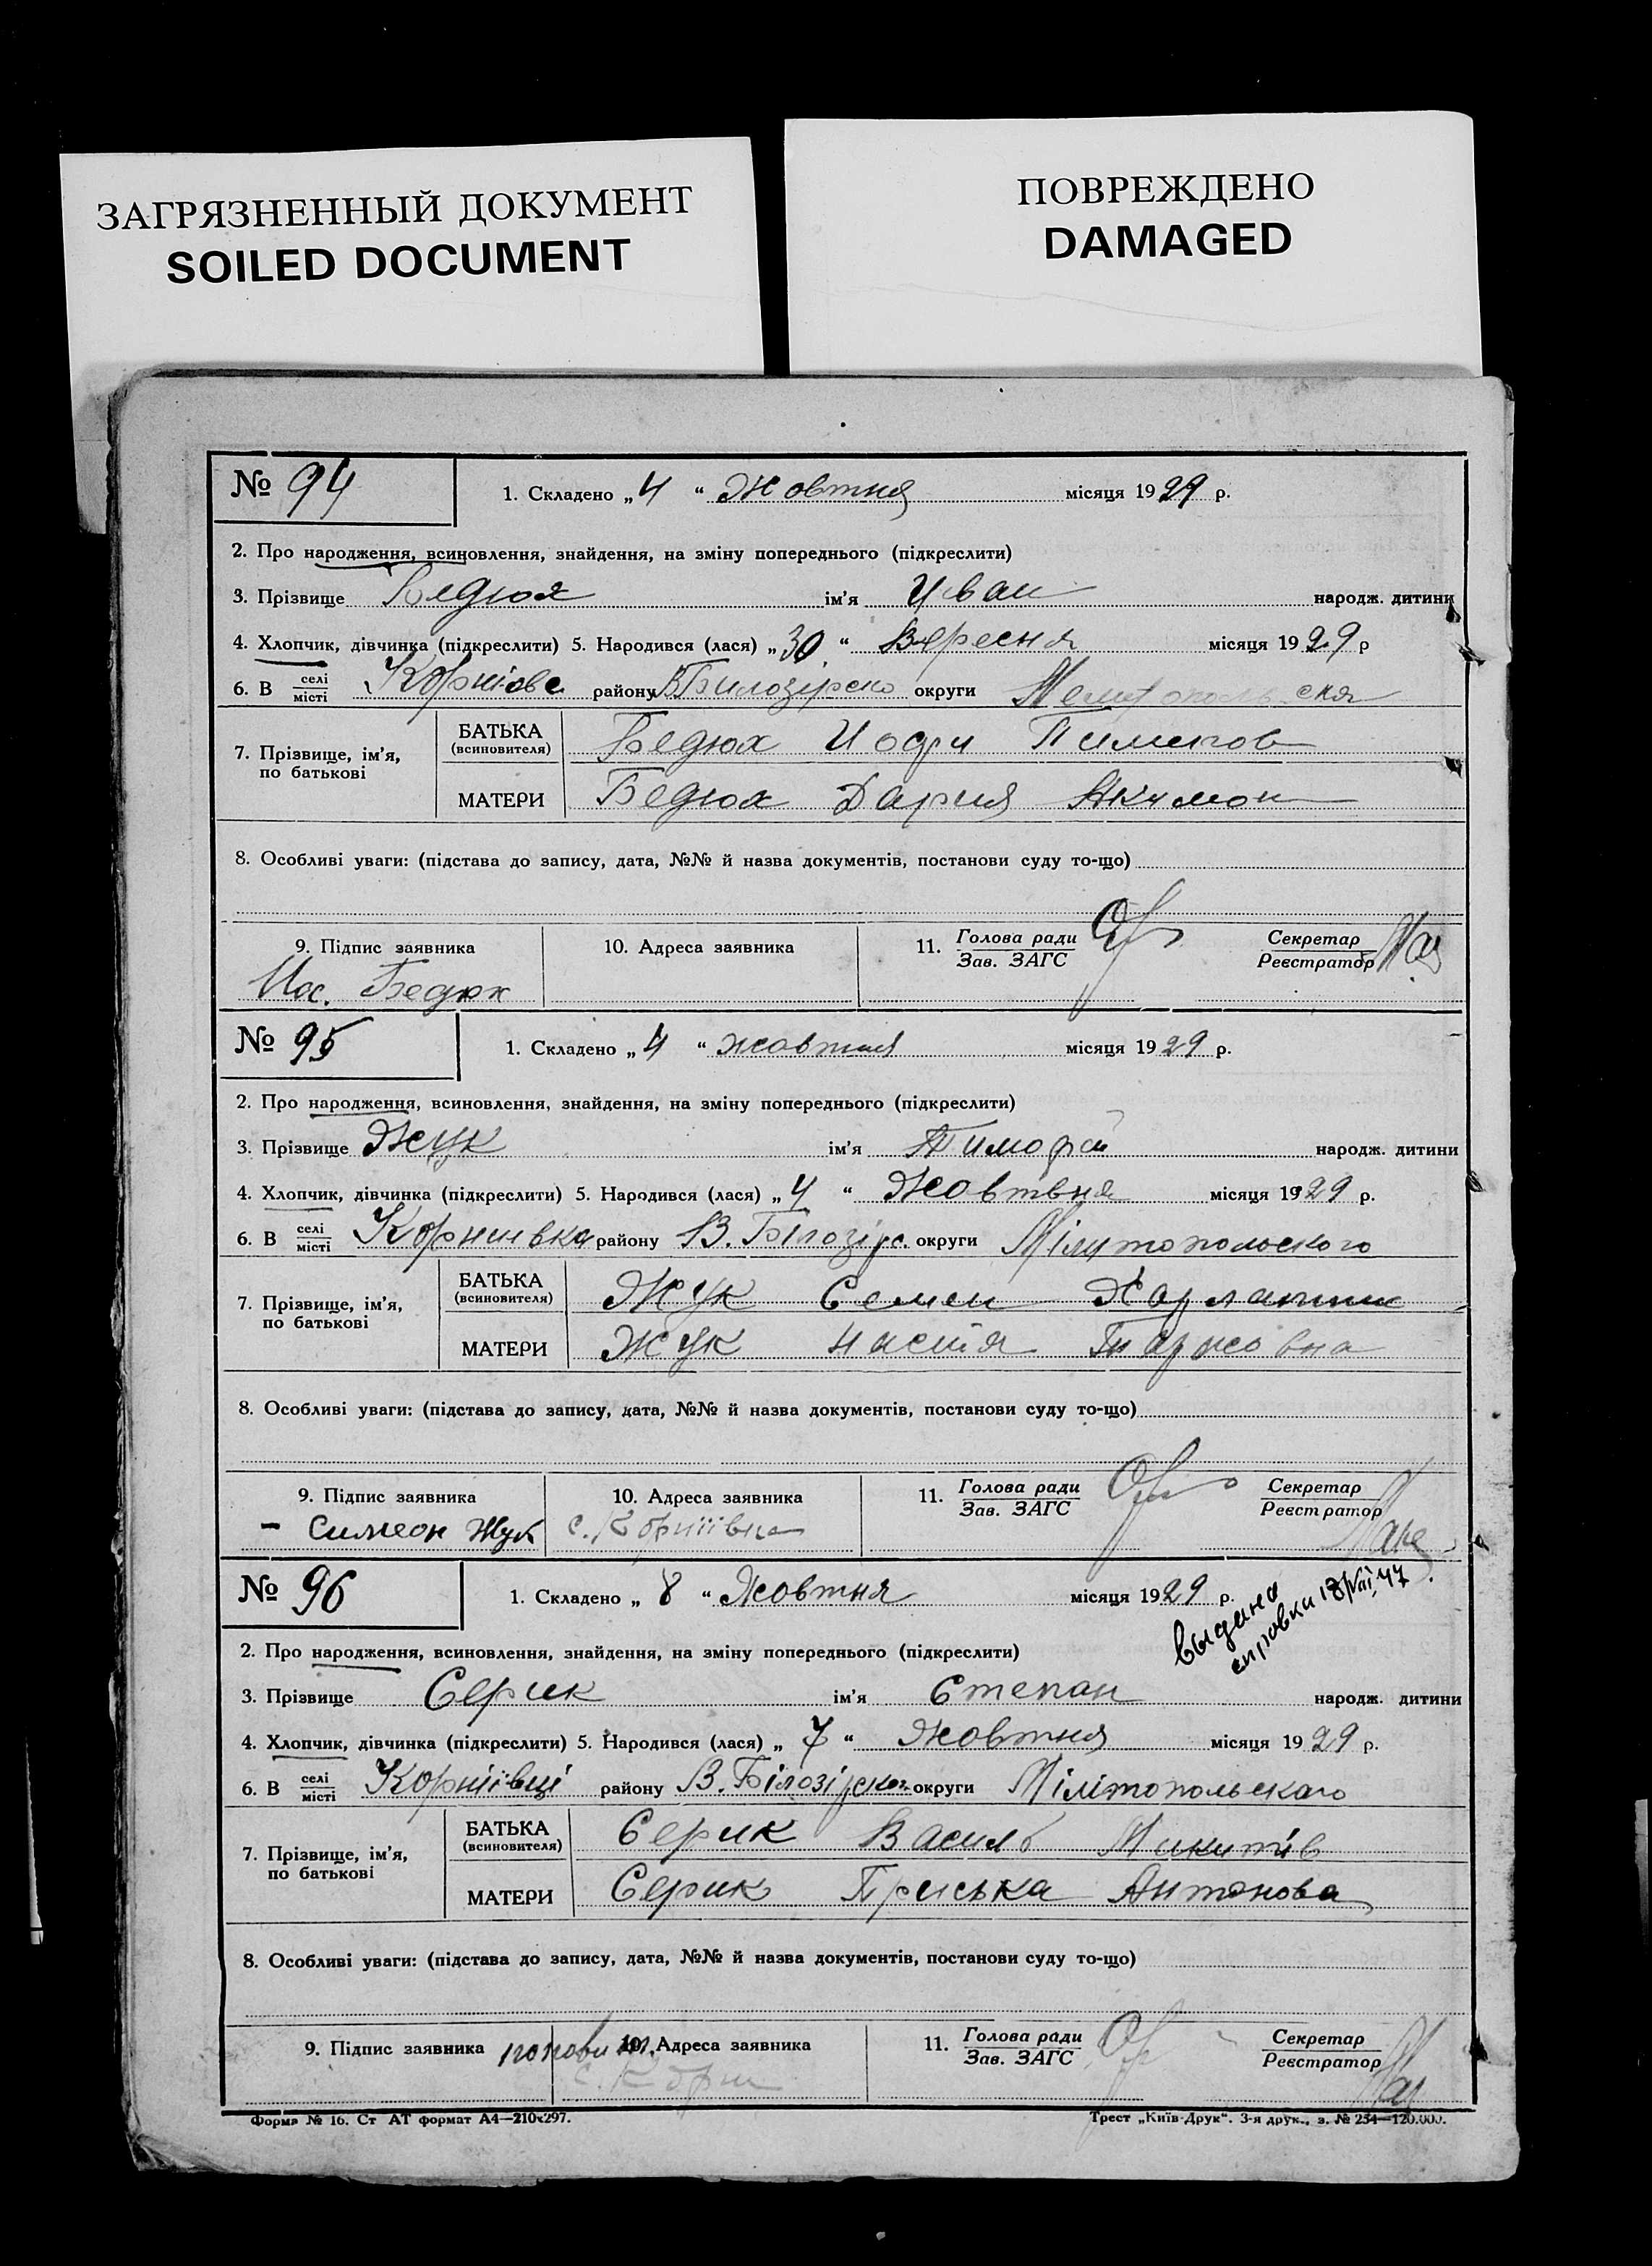 ЗАГРЯЗНЕННЫЙ ДОКУМЕНТ
SOILED DOCUMENT
ПОВРЕЖДЕНО
DAMAGED
№ 94 1. Складено „4“ Жовтня місяця 1929 р.
2. Про народження, всиновлення, знайдення, на зміну попереднього (підкреслити)
3. Прізвище Бедюх ім'я Иван народж. дитини
4. Хлопчик, дівчинка (підкреслити) 5. Народився (лася) „30“ Вересня місяця 1929 р
6. В селі місті району округи
7. Прізвище, ім'я, по батькові БАТЬКА (всиновителя) Бедюх
МАТЕРИ Бедюх Дария Акимон
8. Особливі уваги: (підстава до запису, дата, №№ й назва документів, постанови суду то-що)
9. Підпис заявника 10. Адреса заявника 11. Голова ради Зав. ЗАГС Секретар Реєстратор
Иос. Бедюх
№ 95 1. Складено „4“ жовтня місяця 1929 р.
2. Про народження, всиновлення, знайдення, на зміну попереднього (підкреслити)
3. Прізвище Жук ім'я Тимофій народж. дитини
4. Хлопчик, дівчинка (підкреслити) 5. Народився (лася) „4“ Жовтвня місяця 1929 р.
6. В селі місті Корниивка району В. Білозірс. округи Мілитопольского
7. Прізвище, ім'я, по батькові БАТЬКА (всиновителя) Жук Семен
МАТЕРИ Жук Настя
8. Особливі уваги: (підстава до запису, дата, №№ й назва документів, постанови суду то-що)
9. Підпис заявника 10. Адреса заявника 11. Голова ради Зав. ЗАГС Секретар Реєстратор
— Симеон Жук с. Корніївка
№ 96 1. Складено „8“ Жовтня місяця 1929 р.
выдана справки 18/VII 47
2. Про народження, всиновлення, знайдення, на зміну попереднього (підкреслити)
3. Прізвище Серик ім'я Степан народж. дитини
4. Хлопчик, дівчинка (підкреслити) 5. Народився (лася) „7“ Жовтня місяця 1929 р.
6. В селі місті Корніївці району В. Білозірског округи Мілітопольскаго
7. Прізвище, ім'я, по батькові БАТЬКА (всиновителя) Серик Василь Микитів
МАТЕРИ Серик Пріська Антонова
8. Особливі уваги: (підстава до запису, дата, №№ й назва документів, постанови суду то-що)
9. Підпис заявника 10. Адреса заявника 11. Голова ради Зав. ЗАГС Секретар Реєстратор
Форма № 16. Ст АТ формат А4—210x297. Трест „Київ-Друк“. 3-я друк., з. № 254—120.000.